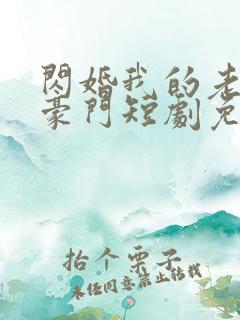 閃婚我的老
豪門短劇免
抬个栗子
未经同意禁止转载